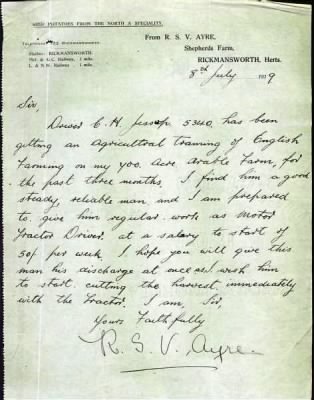 SEED POTATOES FROM THE NORTH A SPECIALITY.
From R. S. V. AYRE,
Shepherds Farm,
RICKMANSWORTH, Herts.
Station: RICKMANSWORTH.
Met. & G.C. Railway, 1 mile.
L. & N.W. Railway, 1 mile.
8th July 1919
Sir
Driver C. H. Jessop 5340 has been
getting an Agricultral training of English
Farming on my 700. Acre Arable Farm, for
the past three months. I find him a good
steady, reliable man and I am prepared
to give him regular work as Motor
Tractor Driver, at a salary to start of
50/- per week. I hope you will give this
man his discharge at once as I wish him
to start cutting the harvest immediately
with the Tractor. I am, Sir,
Yours Faithfully
R. S. V. Ayre.